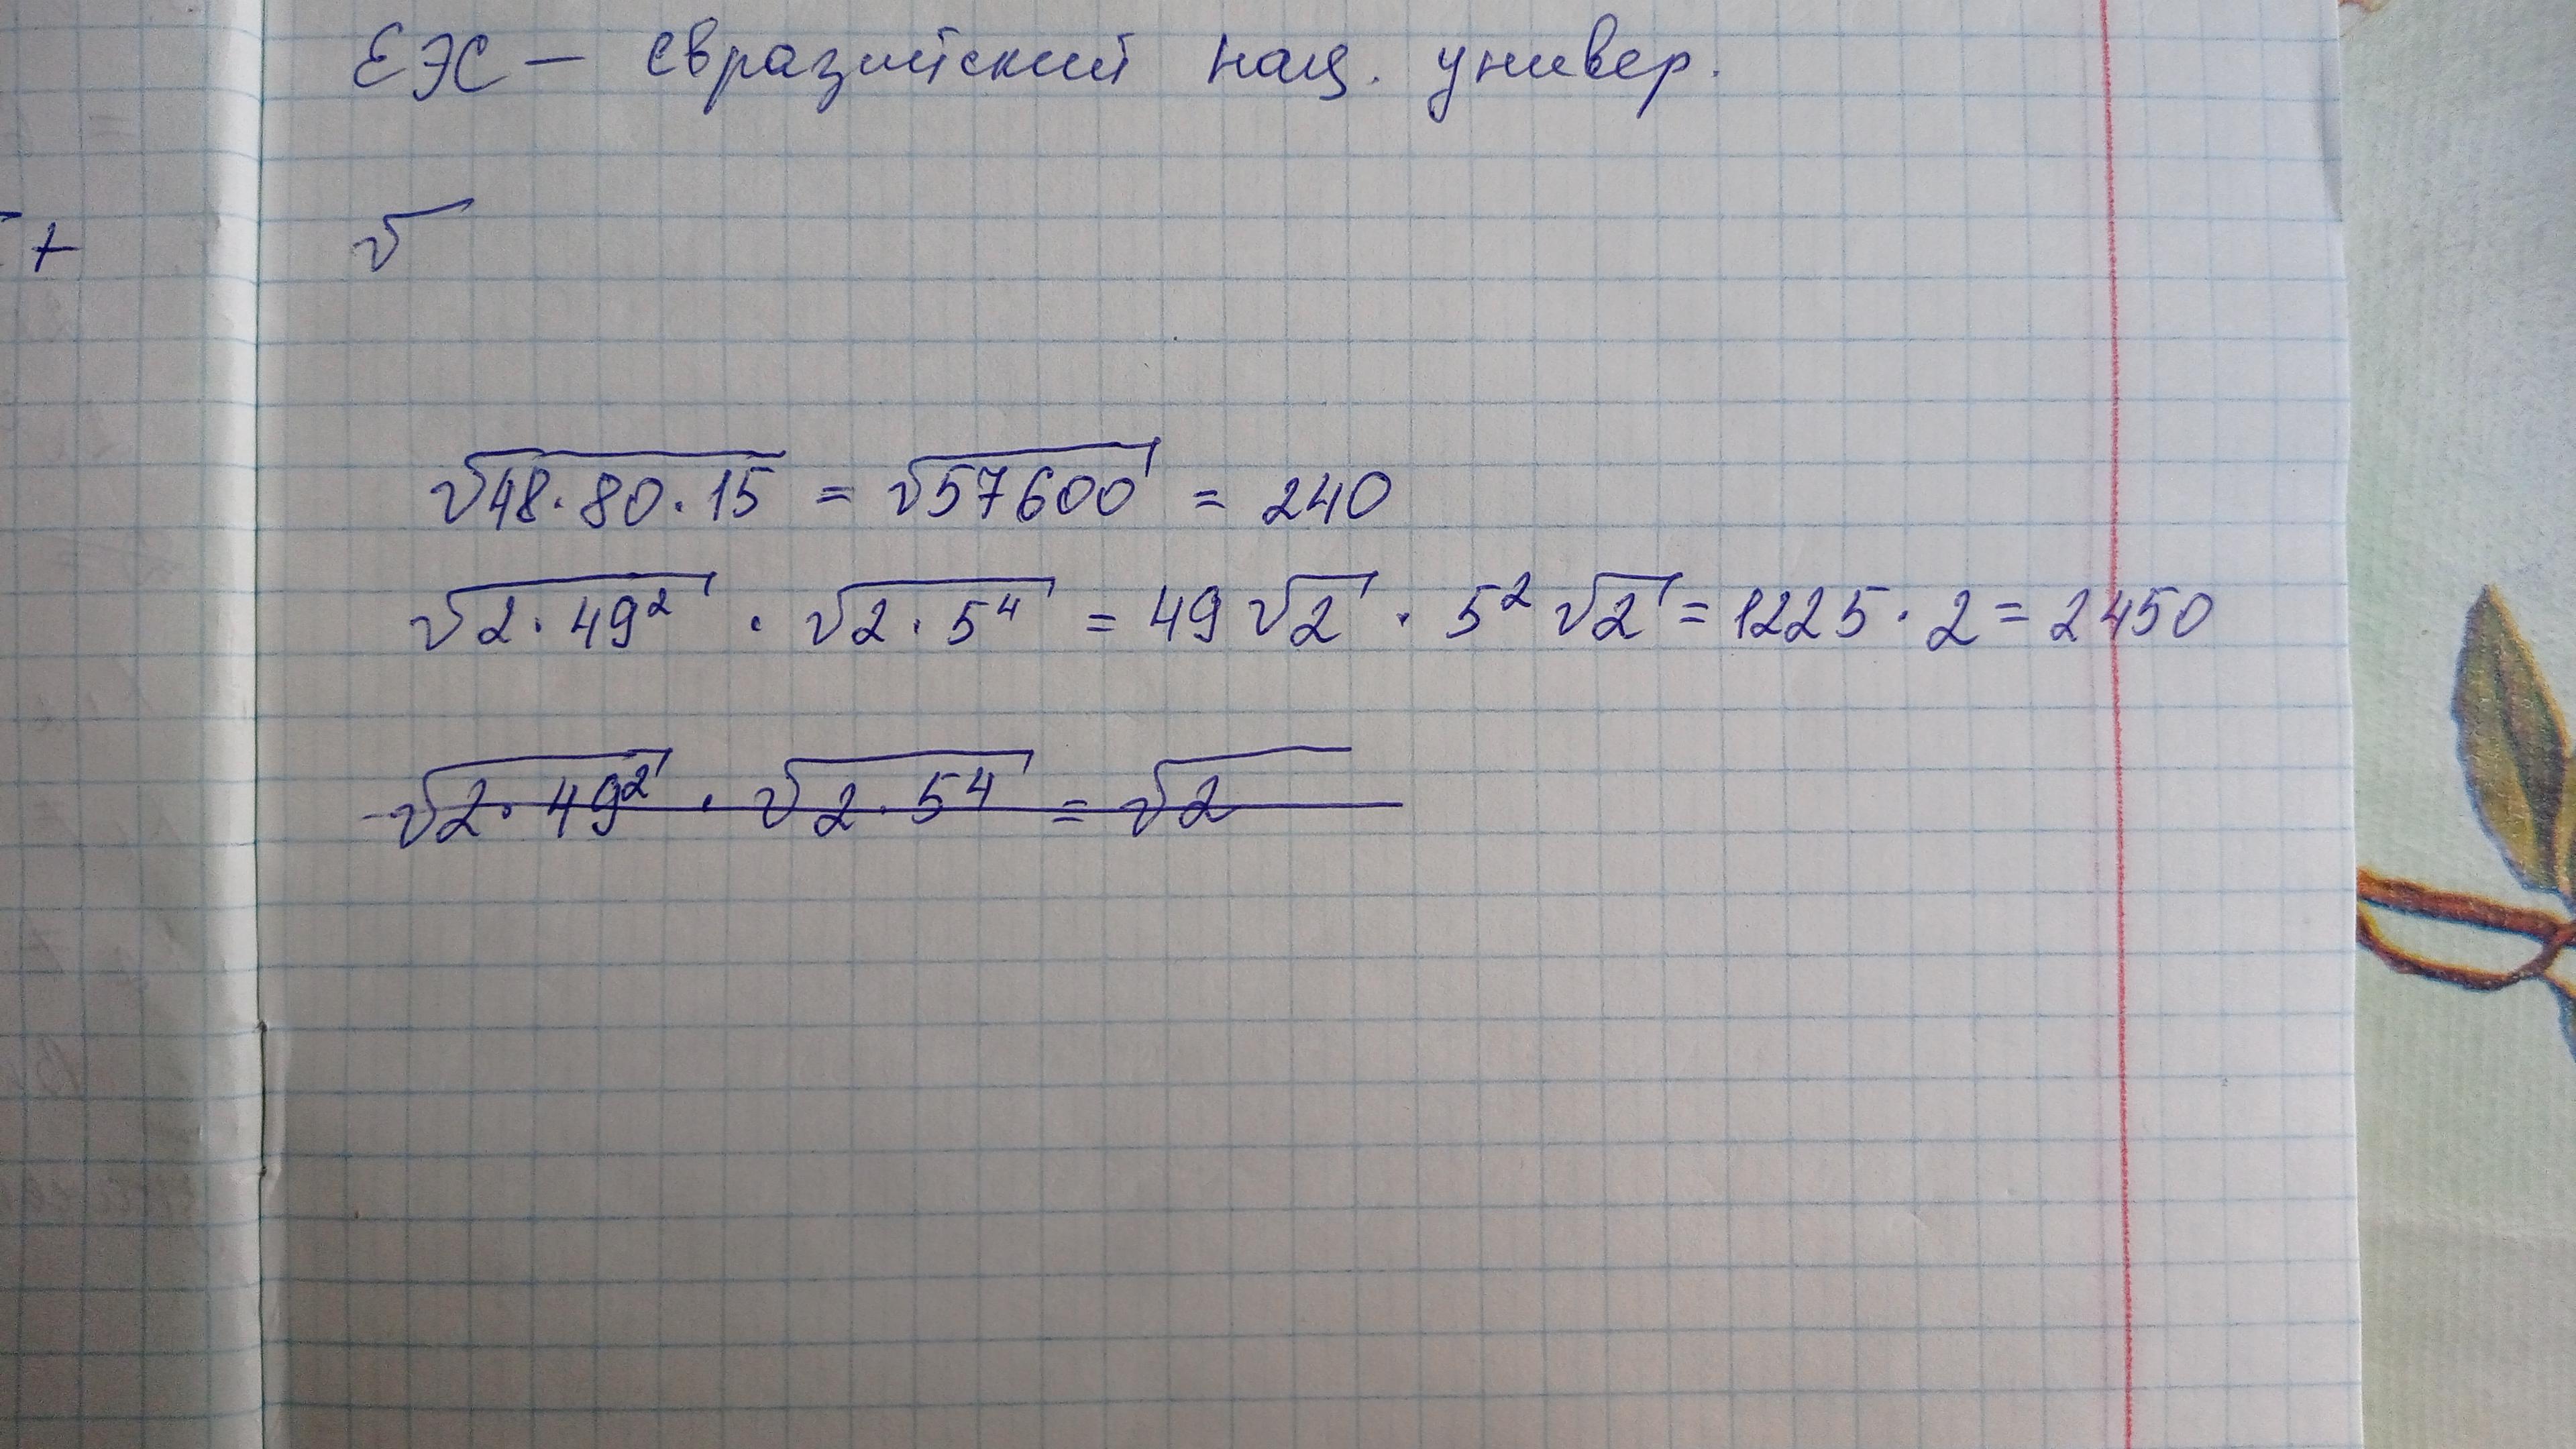 ЕЭС — евразийский нац. универ.
+
√
√48·80·15 = √57600 = 240
√2·49² · √2·5⁴ = 49√2 · 5²√2 = 1225·2 = 2450
√2·49² · √2·5⁴ = √2